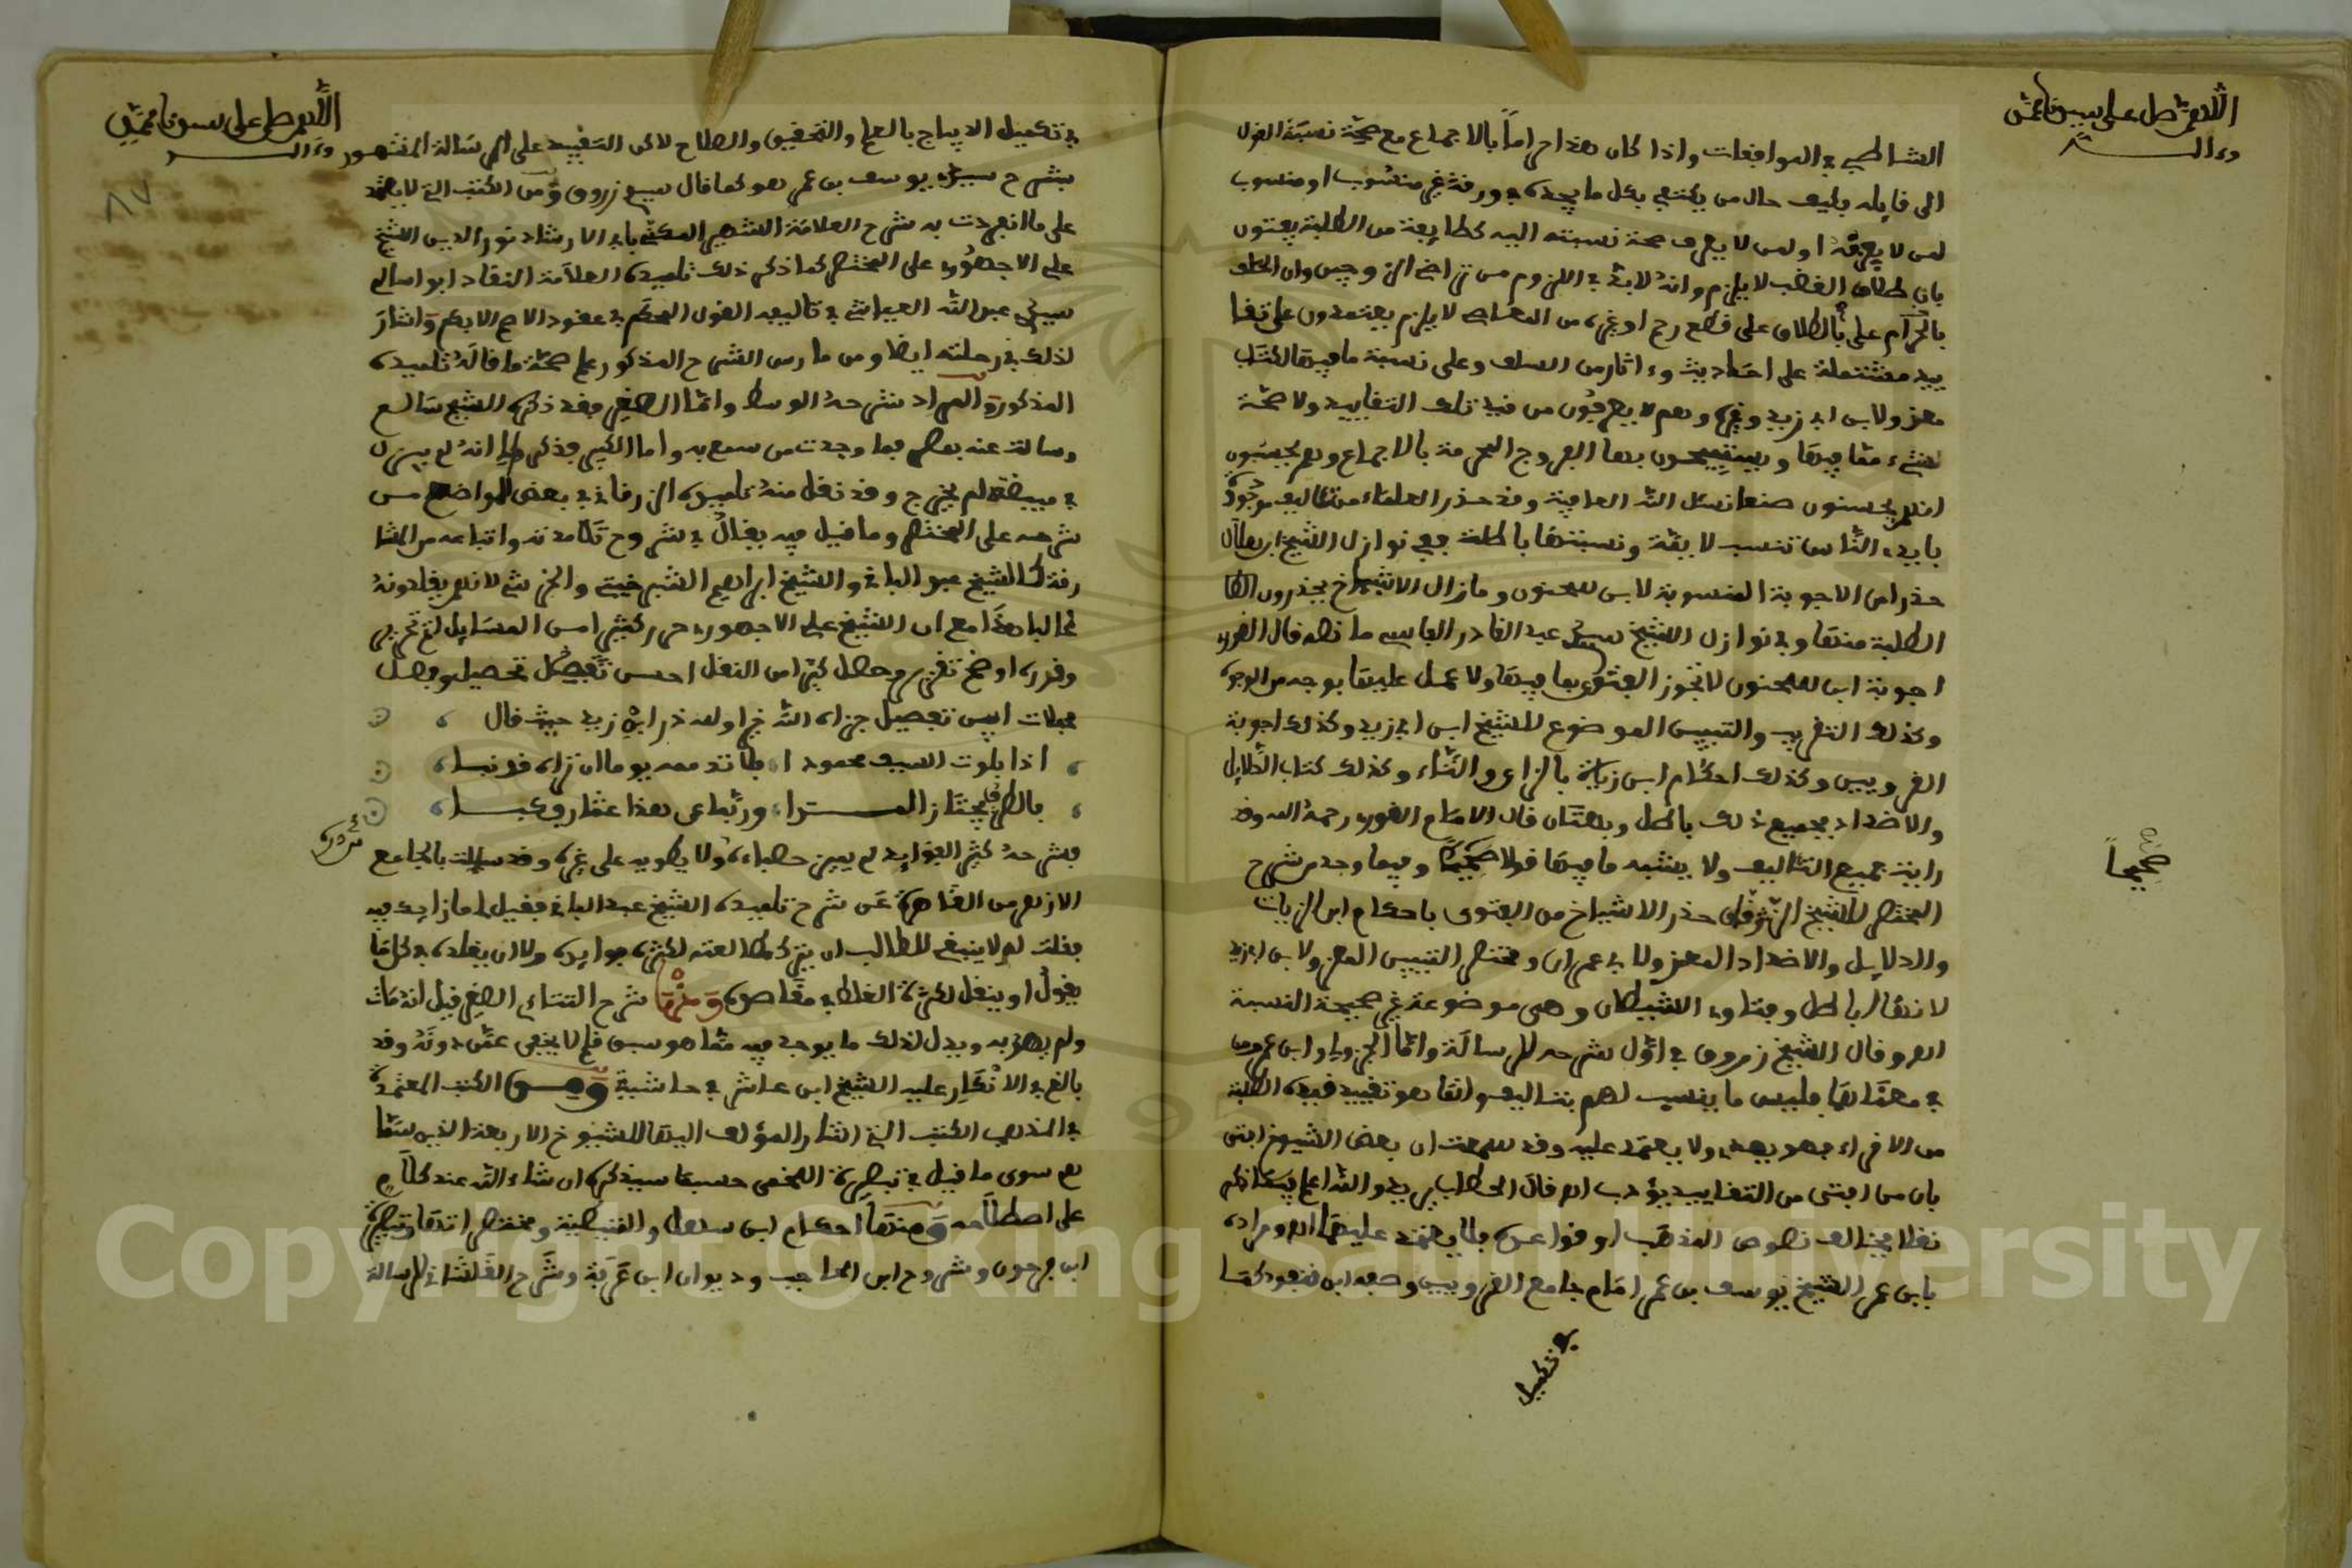 اللهم صل على سيدنا محمد
وءاله
الشاطبي في الموافقات واذا كان هذا حراماً بالاجماع مع صحة نسبة القول
الى قايله فكيف حال من يكتفي بكل ما يجده في ورقة غير منسوب او منسوب
لمن لا يعرفه او لمن لا يعرف صحة نسبته اليه كطايفة من الطلبة يفتون
بان طلاق الغضب لا يلزم وانه لا بد في اللزوم من تراضي الزوجين وان الحلف
بالحرام على بالطلاق على قطع رحم او غيره من المعاصي لا يلزم يعتمدون على تقا
ييد مشتملة على احاديث وءاثار من السلف وعلى نسبة ما فيها لكتاب
معز ولابن ابي زيد وغيره وهم لا يعرفون من قيد تلك التقاييد ولا صحة
شيء مما فيها ويستبيحون بها الفروج المحرمة بالاجماع وهم يحسبون
انهم يحسنون صنعا نسئل الله العافية وقد حذر العلماء من تئاليف موجودة
بايدي الناس تنسب لايمة ونسبتها باطلة ففي نوازل الشيخ ابن هلال
حذر من الاجوبة المنسوبة لابن سحنون وما زال الاشياخ يحذرون الظا
الطلبة منها وفي نوازل الشيخ سيدي عبد القادر الفاسي ما نصه قال القوري
اجوبة ابن سحنون لا تجوز الفتوى بما فيها ولا عمل عليها بوجه من الوجوه
وكذلك التقريب والتبيين الموضوع للشيخ ابن ابي زيد وكذلك اجوبة
القرويين وكذلك احكام ابن زيات بالزاي والتاء وكذلك كتاب الدلايل
والاضداد فجميع ذلك باطل وبهتان قال الامام القوري رحمه الله وقد
رايت جميع التئاليف ولا يشبه ما فيها قولا صحيحا وفيما وجد من شرح
صحيحاً
المختصر للشيخ الزرقاني حذر الاشياخ من الفتوى باحكام ابن الزيات
والدلايل والاضداد المعزو لابي عمران ومختصر التبيين المعزو لابن ابي زيد
لانها اباطل وفتاوي الشيطان وهي موضوعة غير صحيحة النسبة
اهـ وقال الشيخ زروق في اول شرحه للرسالة واما الجزولي وابن عمر ومن
في معناهما فليس ما ينسب لهم بتاليف وانما هو تقييد قيده الطلبة
من الاقراء فهو يهدي ولا يعتمد عليه وقد سمعت ان بعض الشيوخ افتى
بان من افتى من التقاييد يؤدب اهـ قال الحطاب يريد والله اعلم
نقلا يخالف نصوص المذهب او قواعده فلا يعتمد عليها اهـ ومراده
بابن عمر الشيخ يوسف بن عمر امام جامع القرويين وصفه ابن قنفود كما
في تكميل
اللهم صل على سيدنا محمد
وءاله
في تكميل الديباج بالعلم والتحقيق والصلاح لاكن التقييد على الرسالة المشهور
بشرح سيدي يوسف بن عمر هو كما قال سيدي زروق ومن الكتب التي لا يعتمد
على ما انفردت به شرح العلامة الشهير المكنى بابي الارشاد نور الدين الشيخ
علي الاجهوري على المختصر كما ذكر ذلك تلميذه العلامة النقاد ابو سالم
سيدي عبد الله العياشي في تاليفه القول المحكم في عقود الاصم الابكم واشار
لذلك في رحلته ايضا ومن مارس الشرح المذكور علم صحة ما قاله تلميذه
المذكور والمراد شرحه الوسط واما الصغير فقد ذكر الشيخ سالم
وسالت عنه بمصر فما وجدت من سمع به واما الكبير فذكر لي انه لم يزل
في مبيضته لم يخرج وقد نقل منه تلميذه الزرقاني في بعض المواضع من
شرحه على المختصر وما قيل فيه يقال في شروح تلامذته واتباعه من المشا
رقة كالشيخ عبد الباقي والشيخ ابراهيم الشبرخيتي والخرشي لانهم يقلدونه
غالبا هذا مع ان الشيخ علي الاجهوري حرر كثيرا من المسايل اتم تحرير
وقررها اوضح تقرير وحصل كثيرا من النقل احسن تحصيل وفصل
مجملات اليس تفصيل جزاه الله خيرا ولله در ابي زيد حيث قال
اذا بلوت السيف محمودا فلا تذممه يوما ان تراه قد نبا
بالطرف يجتاز المـــدا وربما عن لمعداه عثار فكبا
فشرحه كثير الفوايد لم يميز حصباءه ولا يطويه على غره وقد سيلت بالجامع
الازهر من القاهرة عن شرح تلميذه الشيخ عبد الباقي فقيل لي ما رايك فيه
فقلت لهم لا ينبغي للطالب ان يترك مطالعته لكثرة فوايده ولا ان يقلده في كل ما
يقول او ينقل لكثرة الغلط في مقاصده ومنها شرح التتائي الصغير قيل انه مات
ولم يهذبه ويدل لذلك ما يوجد فيه مما هو سبق قلم لا يخفى عمن دونه وقد
بالغ في الانكار عليه الشيخ ابن عاشر في حاشيته ومن الكتب المعتمدة
في المذهب الكتب التي اشار المؤلف اليها للشيوخ الاربعة الذين سما
هم سوى ما قيل في تبصرة اللخمي حسبما سيذكره ان شاء الله عند كلام
على اصطلاحه ومنها احكام ابن سهل والمتيطية ومختصراتها وتبصرة
ابن فرحون وشروح ابن الحاجب وديوان ابن عرفة وشرح القلشاني للرسالة